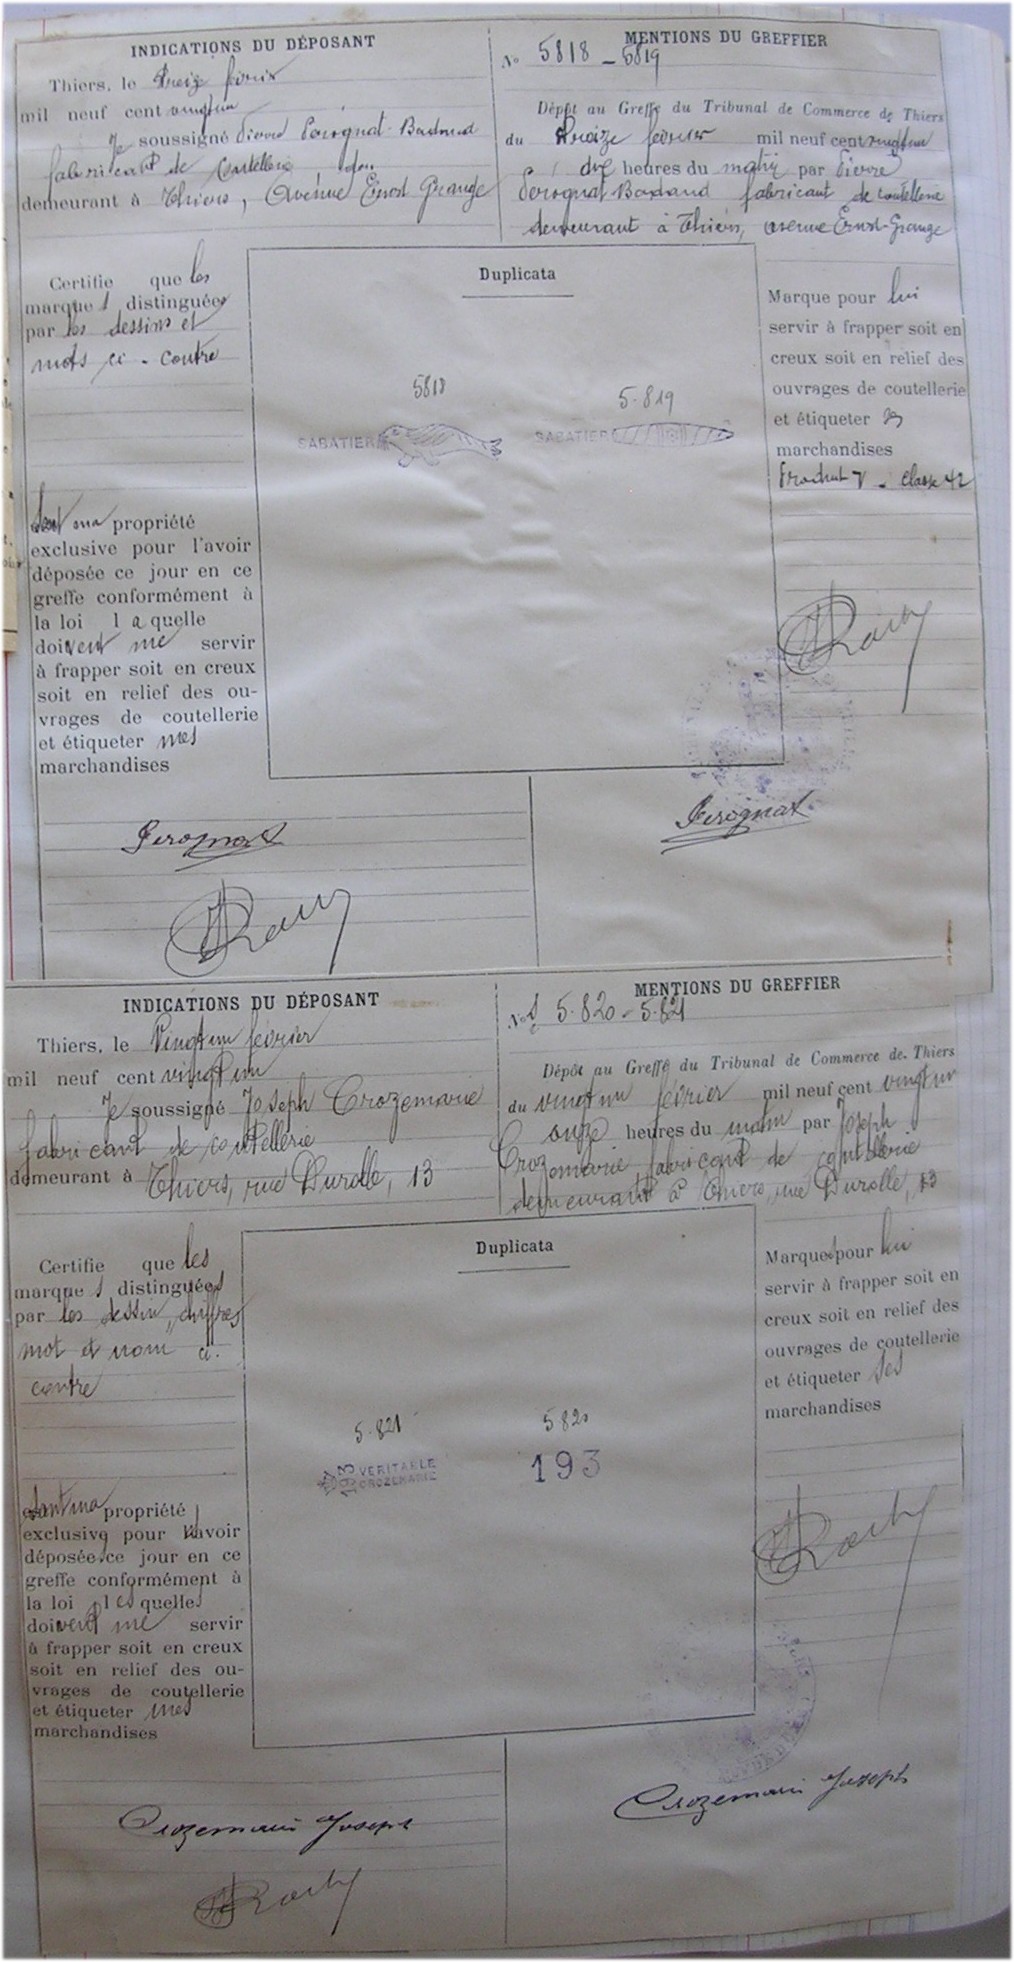 INDICATIONS DU DÉPOSANT
Thiers, le treize février
mil neuf cent vingt un
Je soussigné Pierre Perognat-Bardnaud
fabricant de coutellerie
demeurant à Thiers, Avenue Ernest Grange
MENTIONS DU GREFFIER
No 5818 - 5819
Dépôt au Greffe du Tribunal de Commerce de Thiers
du treize février mil neuf cent vingt un
à dix heures du matin par Pierre
Perognat fabricant de coutellerie
demeurant à Thiers, avenue Ernest-Grange
Certifie que les
marques distinguées
par les dessins et
mots ci-contre
sont ma propriété
exclusive pour l'avoir
déposée ce jour en ce
greffe conformément à
la loi laquelle
doivent me servir
à frapper soit en creux
soit en relief des ou-
vrages de coutellerie
et étiqueter mes
marchandises
Duplicata
5818
SABATIER
5-819
SABATIER
Marque pour lui
servir à frapper soit en
creux soit en relief des
ouvrages de coutellerie
et étiqueter
marchandises
classe 42
Perognat
Perognat
INDICATIONS DU DÉPOSANT
Thiers, le Vingt un février
mil neuf cent vingt un
Je soussigné Joseph Crozemarie
fabricant de coutellerie
demeurant à Thiers, rue Durolle, 13
MENTIONS DU GREFFIER
Nos 5-820-5-821
Dépôt au Greffe du Tribunal de Commerce de Thiers
du vingt un février mil neuf cent vingt un
onze heures du matin par Joseph
Crozemarie, fabricant de coutellerie
demeurant à Thiers, rue Durolle, 13
Certifie que les
marques distinguées
par les dessin, chiffres,
mot et nom ci-
contre
sont ma propriété
exclusive pour l'avoir
déposées ce jour en ce
greffe conformément à
la loi lesquelles
doivent me servir
à frapper soit en creux
soit en relief des ou-
vrages de coutellerie
et étiqueter mes
marchandises
Duplicata
5-821
193 VERITABLE
CROZEMARIE
5820
193
Marques pour lui
servir à frapper soit en
creux soit en relief des
ouvrages de coutellerie
et étiqueter ses
marchandises
Crozemarie Joseph
Crozemarie Joseph